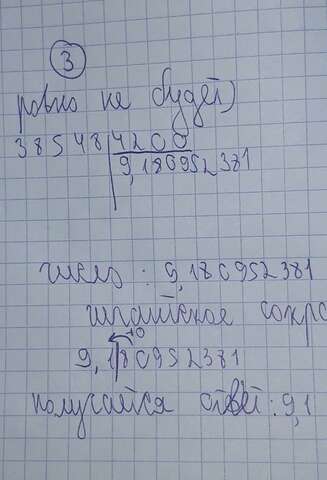 3
ровно не будет)
38548 4200
9,180952381
число: 9,180952381
9,180952381
получается ответ: 9,1